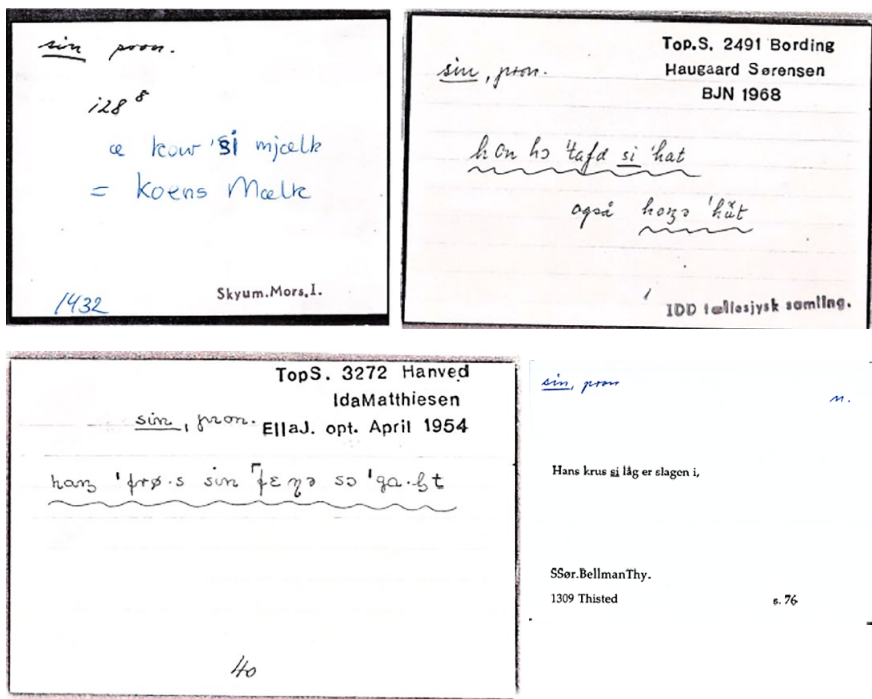 sin pron.
i28 8
æ kow 'si mjælk
= koens Mælk
1432
Skyum.Mors.I.
Top.S. 2491 Bording
Haugaard Sørensen
BJN 1968
sin, pron.
også
IDD fællesjysk samling.
TopS. 3272 Hanved
IdaMatthiesen
EllaJ. opt. April 1954
sin, pron.
40
sin, pron
n.
Hans krus si låg er slagen i,
SSør.BellmanThy.
1309 Thisted s. 76